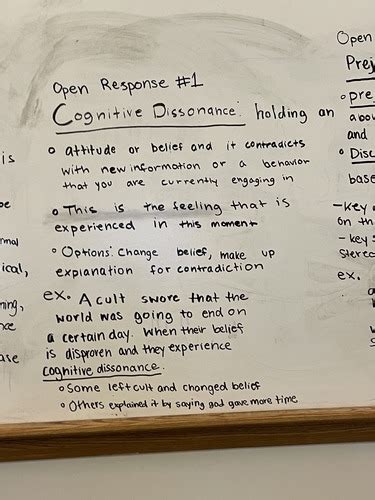 Open Response #1
Cognitive Dissonance: holding an
o attitude or belief and it contradicts
with new information or a behavior
that you are currently engaging in
o This is the feeling that is
experienced in this moment
o Options: Change belief, make up
explanation for contradiction
ex. A cult swore that the
world was going to end on
a certain day. When their belief
is disproven and they experience
cognitive dissonance.
o Some left cult and changed belief
o Others explained it by saying god gave more time
is
ical,
ase
Open
o pre
and
o Disc
base
- key
on th
- key
stereo
ex.